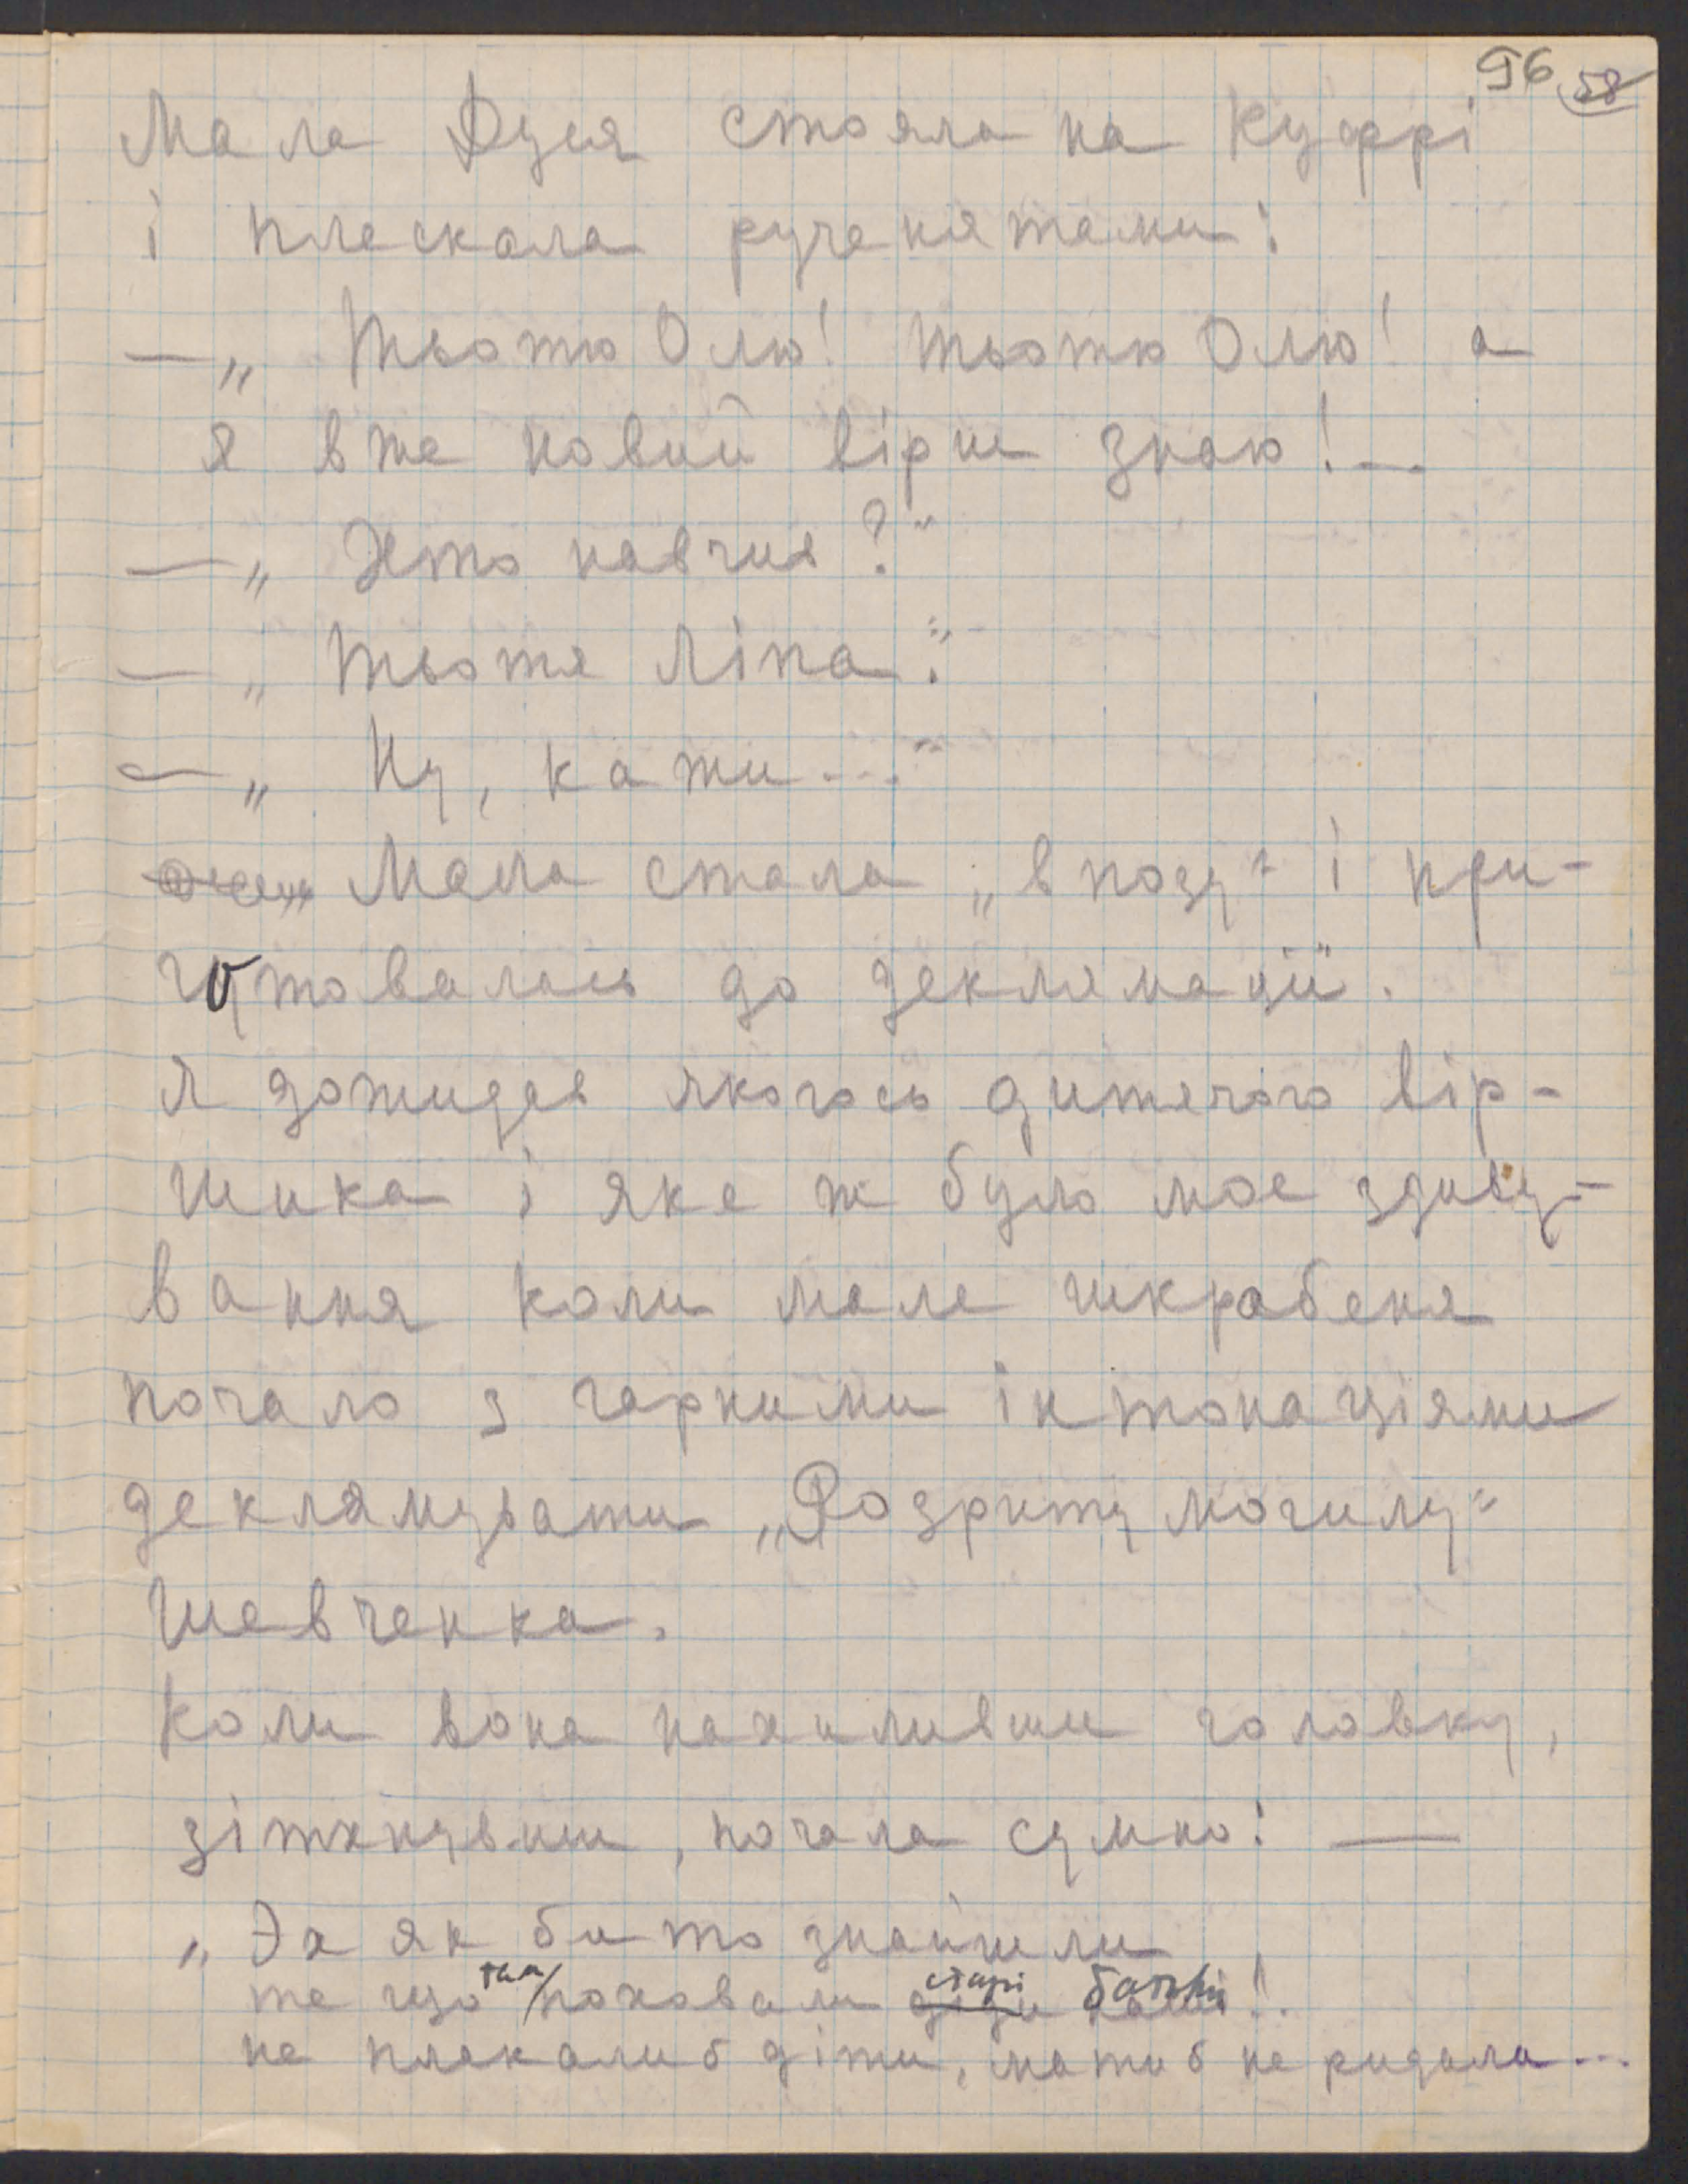 96 58
Мала Дуся стояла на куфрі
і плескала рученятами:
— „Тьотю Олю! тьотю Олю! а
я вже новий вірш знаю! ...
— „Хто навчив?“
— „Тьотя Ліпа“.
— „Ну, кажи ...“
Мала стала „в позу“ і при-
готовалась до деклямації.
Я дожидав якогось дитячого вір-
шика і яке ж було моє здиву-
вання коли мале шкрабеня
почало з гарними інтонаціями
деклямувати „Розриту могилу“
Шевченка.
Коли вона нахиливши головку,
зіткнувши, почала сумно: —
„Эх як би то знайшли
те що там поховали старі батьки!.
не плакали б діти, мати б не ридала...